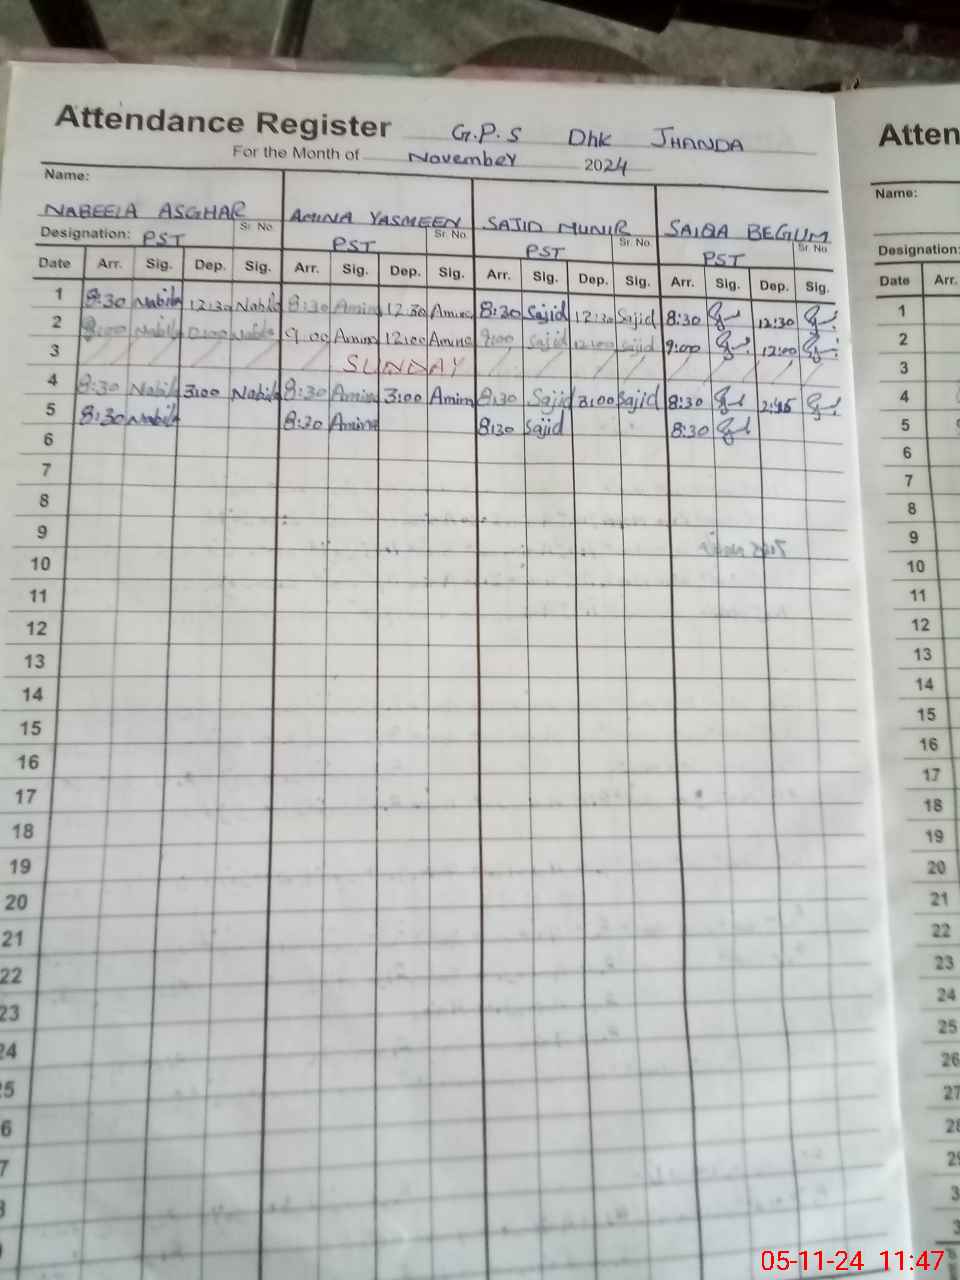 Attendance Register G.P.S Dhk JHANDA
For the Month of November 2024
Name:
NABEELA ASGHAR AMINA YASMEEN SAJID MUNIR SAIQA BEGUM
Designation: PST Sr. No. PST Sr. No. PST Sr. No. PST Sr. No.
Date Arr. Sig. Dep. Sig. Arr. Sig. Dep. Sig. Arr. Sig. Dep. Sig. Arr. Sig. Dep. Sig.
1 8:30 Nabila 12:30 Nabila 8:30 Amina 12:30 Amina 8:30 Sajid 12:30 Sajid 8:30 12:30
2 9:00 Nabila Nabila 9:00 Amina 12:00 Amina 9:00 Sajid 12:00 Sajid 9:00 12:00
3 SUNDAY
4 8:30 Nabila 3:00 Nabila 8:30 Amina 3:00 Amina 8:30 Sajid 3:00 Sajid 8:30 2:45
5 8:30 Nabila 8:30 Amina 8:30 Sajid 8:30
6
7
8
9
10
11
12
13
14
15
16
17
18
19
20
21
22
23
24
25
6
7
8
Atten
Name:
Designation:
Date Arr.
1
2
3
4
5
6
7
8
9
10
11
12
13
14
15
16
17
18
19
20
21
22
23
24
25
26
27
28
29
3
3
05-11-24 11:47